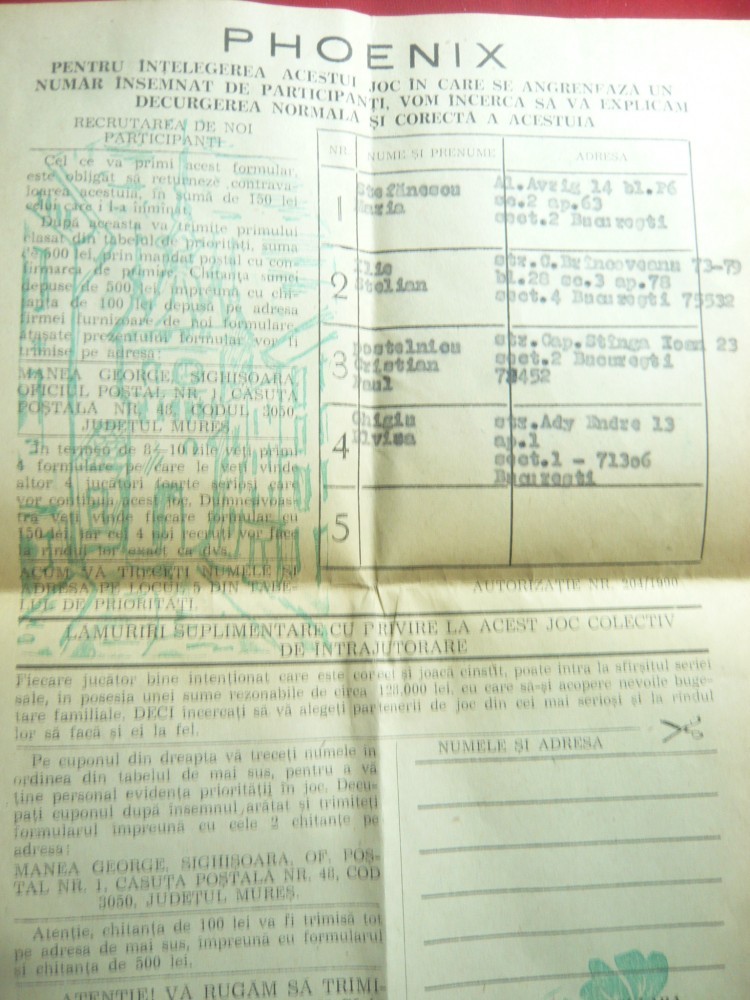 PHOENIX
PENTRU ÎNȚELEGEREA ACESTUI JOC ÎN CARE SE ANGRENEAZA UN
NUMĂR ÎNSEMNAT DE PARTICIPANȚI, VOM ÎNCERCA SĂ VĂ EXPLICĂM
DECURGEREA NORMALĂ ȘI CORECTĂ A ACESTUIA
RECRUTAREA DE NOI
PARTICIPANȚI
Cel ce va primi acest formular,
este obligat să returneze contrava-
loarea acestuia, în sumă de 150 lei
celui care i l-a înmînat.
După aceasta va trimite primului
clasat din tabelul de priorități, suma
de 500 lei, prin mandat poștal cu con-
firmarea de primire. Chitanța sumei
depuse de 500 lei, împreună cu chi-
tanța de 100 lei depusă pe adresa
firmei furnizoare de noi formulare
atașate prezentului formular vor fi
trimise pe adresa:
MANEA GEORGE, SIGHIȘOARA,
OFICIUL POȘTAL NR. 1, CĂSUȚA
POȘTALĂ NR. 48, CODUL 3050,
JUDEȚUL MUREȘ.
În termen de 8-10 zile veți primi
4 formulare pe care le veți vinde
altor 4 jucători foarte serioși care
vor continua acest joc. Dumneavoas-
tră veți vinde fiecare formular cu
150 lei, iar cei 4 noi recruți vor face
la rîndul lor exact ca dvs.
ACUM VĂ TRECEȚI NUMELE ȘI
ADRESA PE LOCUL 5 DIN TABE-
LUL DE PRIORITĂȚI.
NR. NUME ȘI PRENUME ADRESA
1 Stefănescu Al.Avrig 14 bl.P6
Maria sc.2 ap.63
sect.2 București
2 Ilie str.C.Brîncoveanu 73-79
Stelian bl.28 sc.3 ap.78
sect.4 București 75532
3 Postelnicu str.Cap.Stinga Ioan 23
Cristian sect.2 București
Paul
4 Ghigiu str.Ady Endre 13
Elvisa ap.1
sect.1 - 71306
București
5
AUTORIZAȚIE NR. 204/1990
LĂMURIRI SUPLIMENTARE CU PRIVIRE LA ACEST JOC COLECTIV
DE ÎNTRAJUTORARE
Fiecare jucător bine intenționat care este corect și joacă cinstit, poate intra la sfîrșitul seriei
sale, în posesia unei sume rezonabile de circa 128.000 lei, cu care să-și acopere nevoile buge-
tare familiale. DECI încercați să vă alegeți partenerii de joc din cei mai serioși și la rîndul
lor să facă și ei la fel.
Pe cuponul din dreapta vă treceți numele în
ordinea din tabelul de mai sus, pentru a vă
ține personal evidența priorității în joc. Decu-
pați cuponul după însemnul arătat și trimiteți
formularul împreună cu cele 2 chitanțe pe
adresa:
MANEA GEORGE, SIGHIȘOARA, OF. POȘ-
TAL NR. 1, CĂSUȚA POȘTALĂ NR. 48, COD
3050, JUDEȚUL MUREȘ.
Atenție, chitanța de 100 lei va fi trimisă tot
pe adresa de mai sus, împreună cu formularul
și chitanța de 500 lei.
ATENȚIE! VĂ RUGĂM SĂ TRIMI-
NUMELE ȘI ADRESA